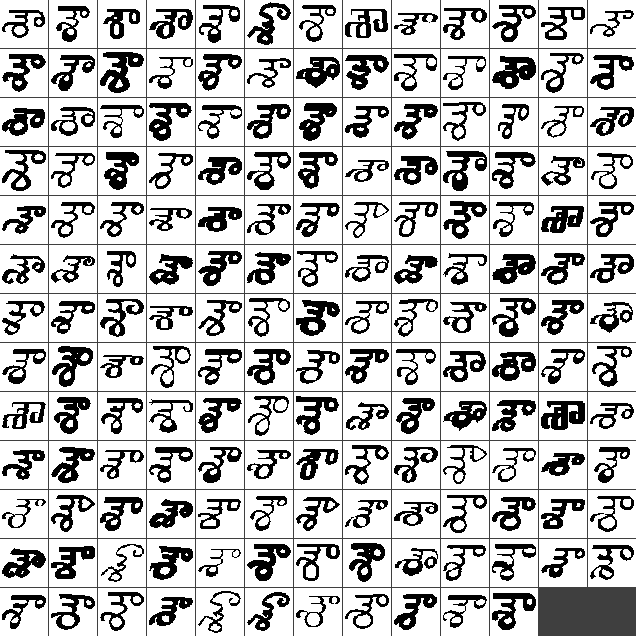 శా శా శా శా శా శా శా శా శా శా శా శా శా
శా శా శా శా శా శా శా శా శా శా శా శా శా
శా శా శా శా శా శా శా శా శా శా శా శా శా
శా శా శా శా శా శా శా శా శా శా శా శా శా
శా శా శా శా శా శా శా శా శా శా శా శా శా
శా శా శా శా శా శా శా శా శా శా శా శా శా
శా శా శా శా శా శా శా శా శా శా శా శా శా
శా శా శా శా శా శా శా శా శా శా శా శా శా
శా శా శా శా శా శా శా శా శా శా శా శా శా
శా శా శా శా శా శా శా శా శా శా శా శా శా
శా శా శా శా శా శా శా శా శా శా శా శా శా
శా శా శా శా శా శా శా శా శా శా శా శా శా
శా శా శా శా శా శా శా శా శా శా శా